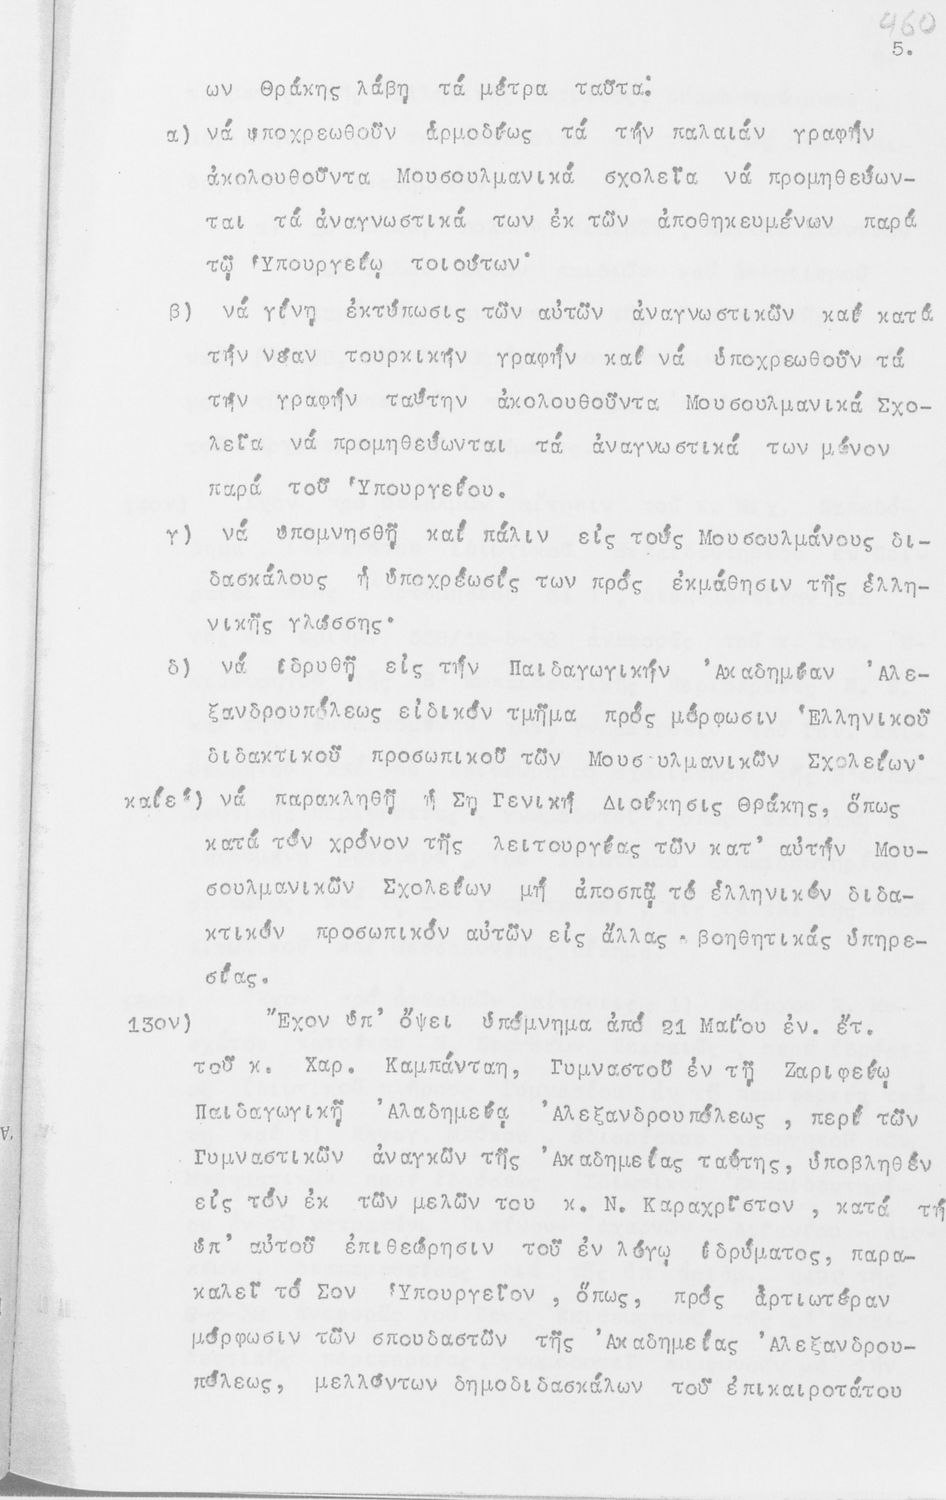 460
5.
ων Θράκης λάβῃ τά μέτρα ταῦτα:
α) νά ὑποχρεωθοῦν ἁρμοδίως τά τήν παλαιάν γραφήν
ἀκολουθοῦντα Μουσουλμανικά σχολεῖα νά προμηθεύων-
ται τά ἀναγνωστικά των ἐκ τῶν ἀποθηκευμένων παρά
τῷ Ὑπουργείῳ τοιούτων·
β) νά γίνῃ ἐκτύπωσις τῶν αὐτῶν ἀναγνωστικῶν καί κατά
τήν νέαν τουρκικήν γραφήν καί νά ὑποχρεωθοῦν τά
τήν γραφήν ταύτην ἀκολουθοῦντα Μουσουλμανικά Σχο-
λεῖα νά προμηθεύωνται τά ἀναγνωστικά των μόνον
παρά τοῦ Ὑπουργείου.
γ) νά ὑπομνησθῇ καί πάλιν εἰς τούς Μουσουλμάνους δι-
δασκάλους ἡ ὑποχρέωσίς των πρός ἐκμάθησιν τῆς ἑλλη-
νικῆς γλώσσης·
δ) νά ἱδρυθῇ εἰς τήν Παιδαγωγικήν Ἀκαδημίαν Ἀλε-
ξανδρουπόλεως εἰδικόν τμῆμα πρός μόρφωσιν Ἑλληνικοῦ
διδακτικοῦ προσωπικοῦ τῶν Μουσουλμανικῶν Σχολείων·
καίε') νά παρακληθῇ ἡ Σῃ Γενική Διοίκησις Θράκης, ὅπως
κατά τόν χρόνον τῆς λειτουργίας τῶν κατ' αὐτήν Μου-
σουλμανικῶν Σχολείων μή ἀποσπᾷ τό ἑλληνικόν διδα-
κτικόν προσωπικόν αὐτῶν εἰς ἄλλας · βοηθητικάς ὑπηρε-
σίας.
13ον) Ἔχον ὑπ' ὄψει ὑπόμνημα ἀπό 21 Μαΐου ἐν. ἔτ.
τοῦ κ. Χαρ. Καμπάνταη, Γυμναστοῦ ἐν τῇ Ζαριφείῳ
Παιδαγωγικῇ Ἀλαδημείᾳ Ἀλεξανδρουπόλεως , περί τῶν
Γυμναστικῶν ἀναγκῶν τῆς Ἀκαδημείας ταύτης, ὑποβληθέν
εἰς τόν ἐκ τῶν μελῶν του κ. Ν. Καραχρῖστον , κατά τή
ὑπ' αὐτοῦ ἐπιθεώρησιν τοῦ ἐν λόγῳ ἱδρύματος, παρα-
καλεῖ τό Σον Ὑπουργεῖον , ὅπως, πρός ἀρτιωτέραν
μόρφωσιν τῶν σπουδαστῶν τῆς Ἀκαδημείας Ἀλεξανδρου-
πόλεως, μελλόντων δημοδιδασκάλων τοῦ ἐπικαιροτάτου